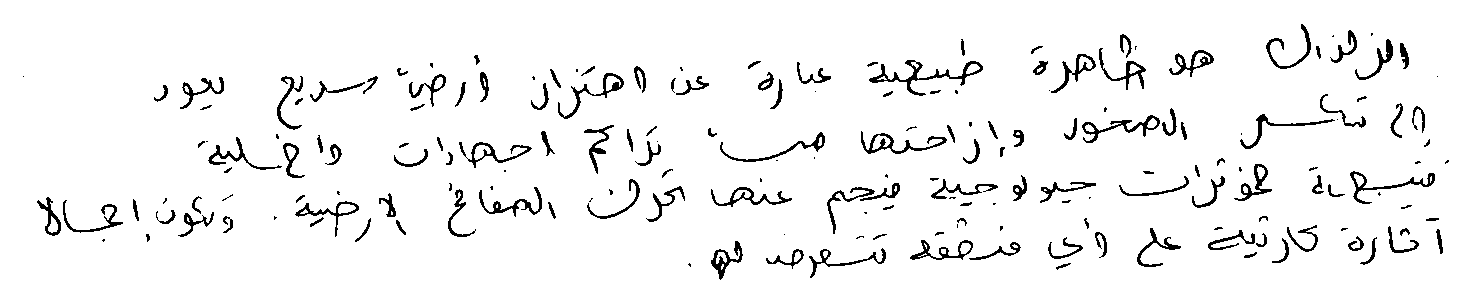 الزلزال هو ظاهرة طبيعية عبارة عن اهتزاز أرضي سريع يعود
إلى تكسر الصخور وإزاحتها بسبب تراكم اجهادات داخلية
نتيجة لمؤثرات جيولوجية ينجم عنها تحرك الصفائح الارضية. وتكون إجمالا
آثاره كارثية على أي منطقة تتعرض له.